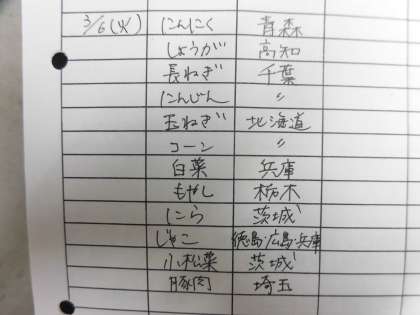 3/6(火) にんにく 青森
しょうが 高知
長ねぎ 千葉
にんじん 〃
玉ねぎ 北海道
コーン 〃
白菜 兵庫
もやし 栃木
にら 茨城
じゃこ 徳島・広島・兵庫
小松菜 茨城
豚肉 埼玉